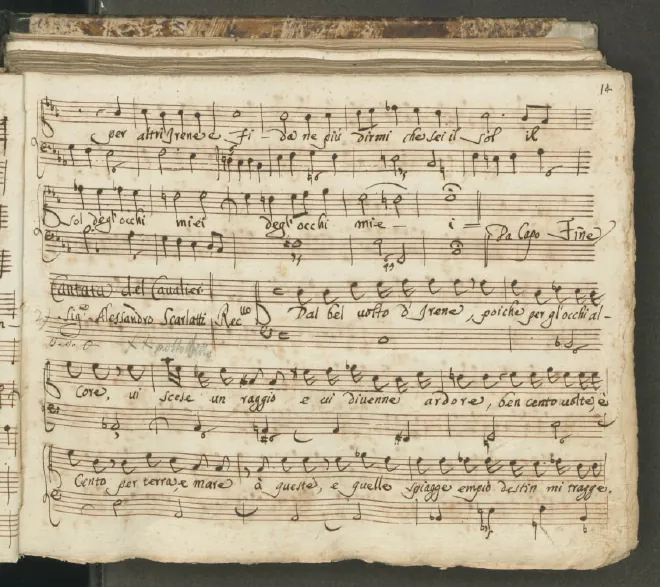 14
per altri Irene e Fi - da ne più dirmi che sei il sol il
sol degl'occhi miei degl'occhi mie - i
Da Capo Fine
Cantata del Cavalier
Sig.r Alessandro Scarlatti Rec.vo Dal bel volto d'Irene, poiche per gl'occhi al-
Core, vi scese un raggio e vi divenne ardore, ben cento volte, e
Cento per terra, e mare à queste, e quelle spiagge empio destin mi tragge.